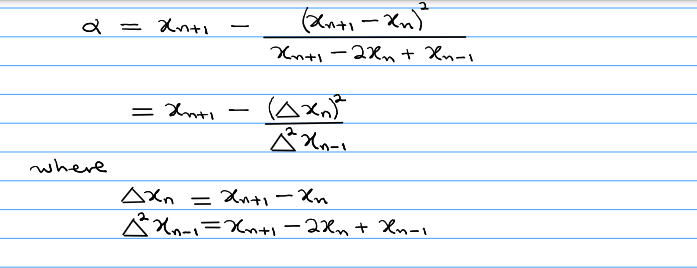 α = xₙ₊₁ − (xₙ₊₁ − xₙ)² / (xₙ₊₁ − 2xₙ + xₙ₋₁)
= xₙ₊₁ − (△xₙ)² / △²xₙ₋₁
where
△xₙ = xₙ₊₁ − xₙ
△²xₙ₋₁ = xₙ₊₁ − 2xₙ + xₙ₋₁